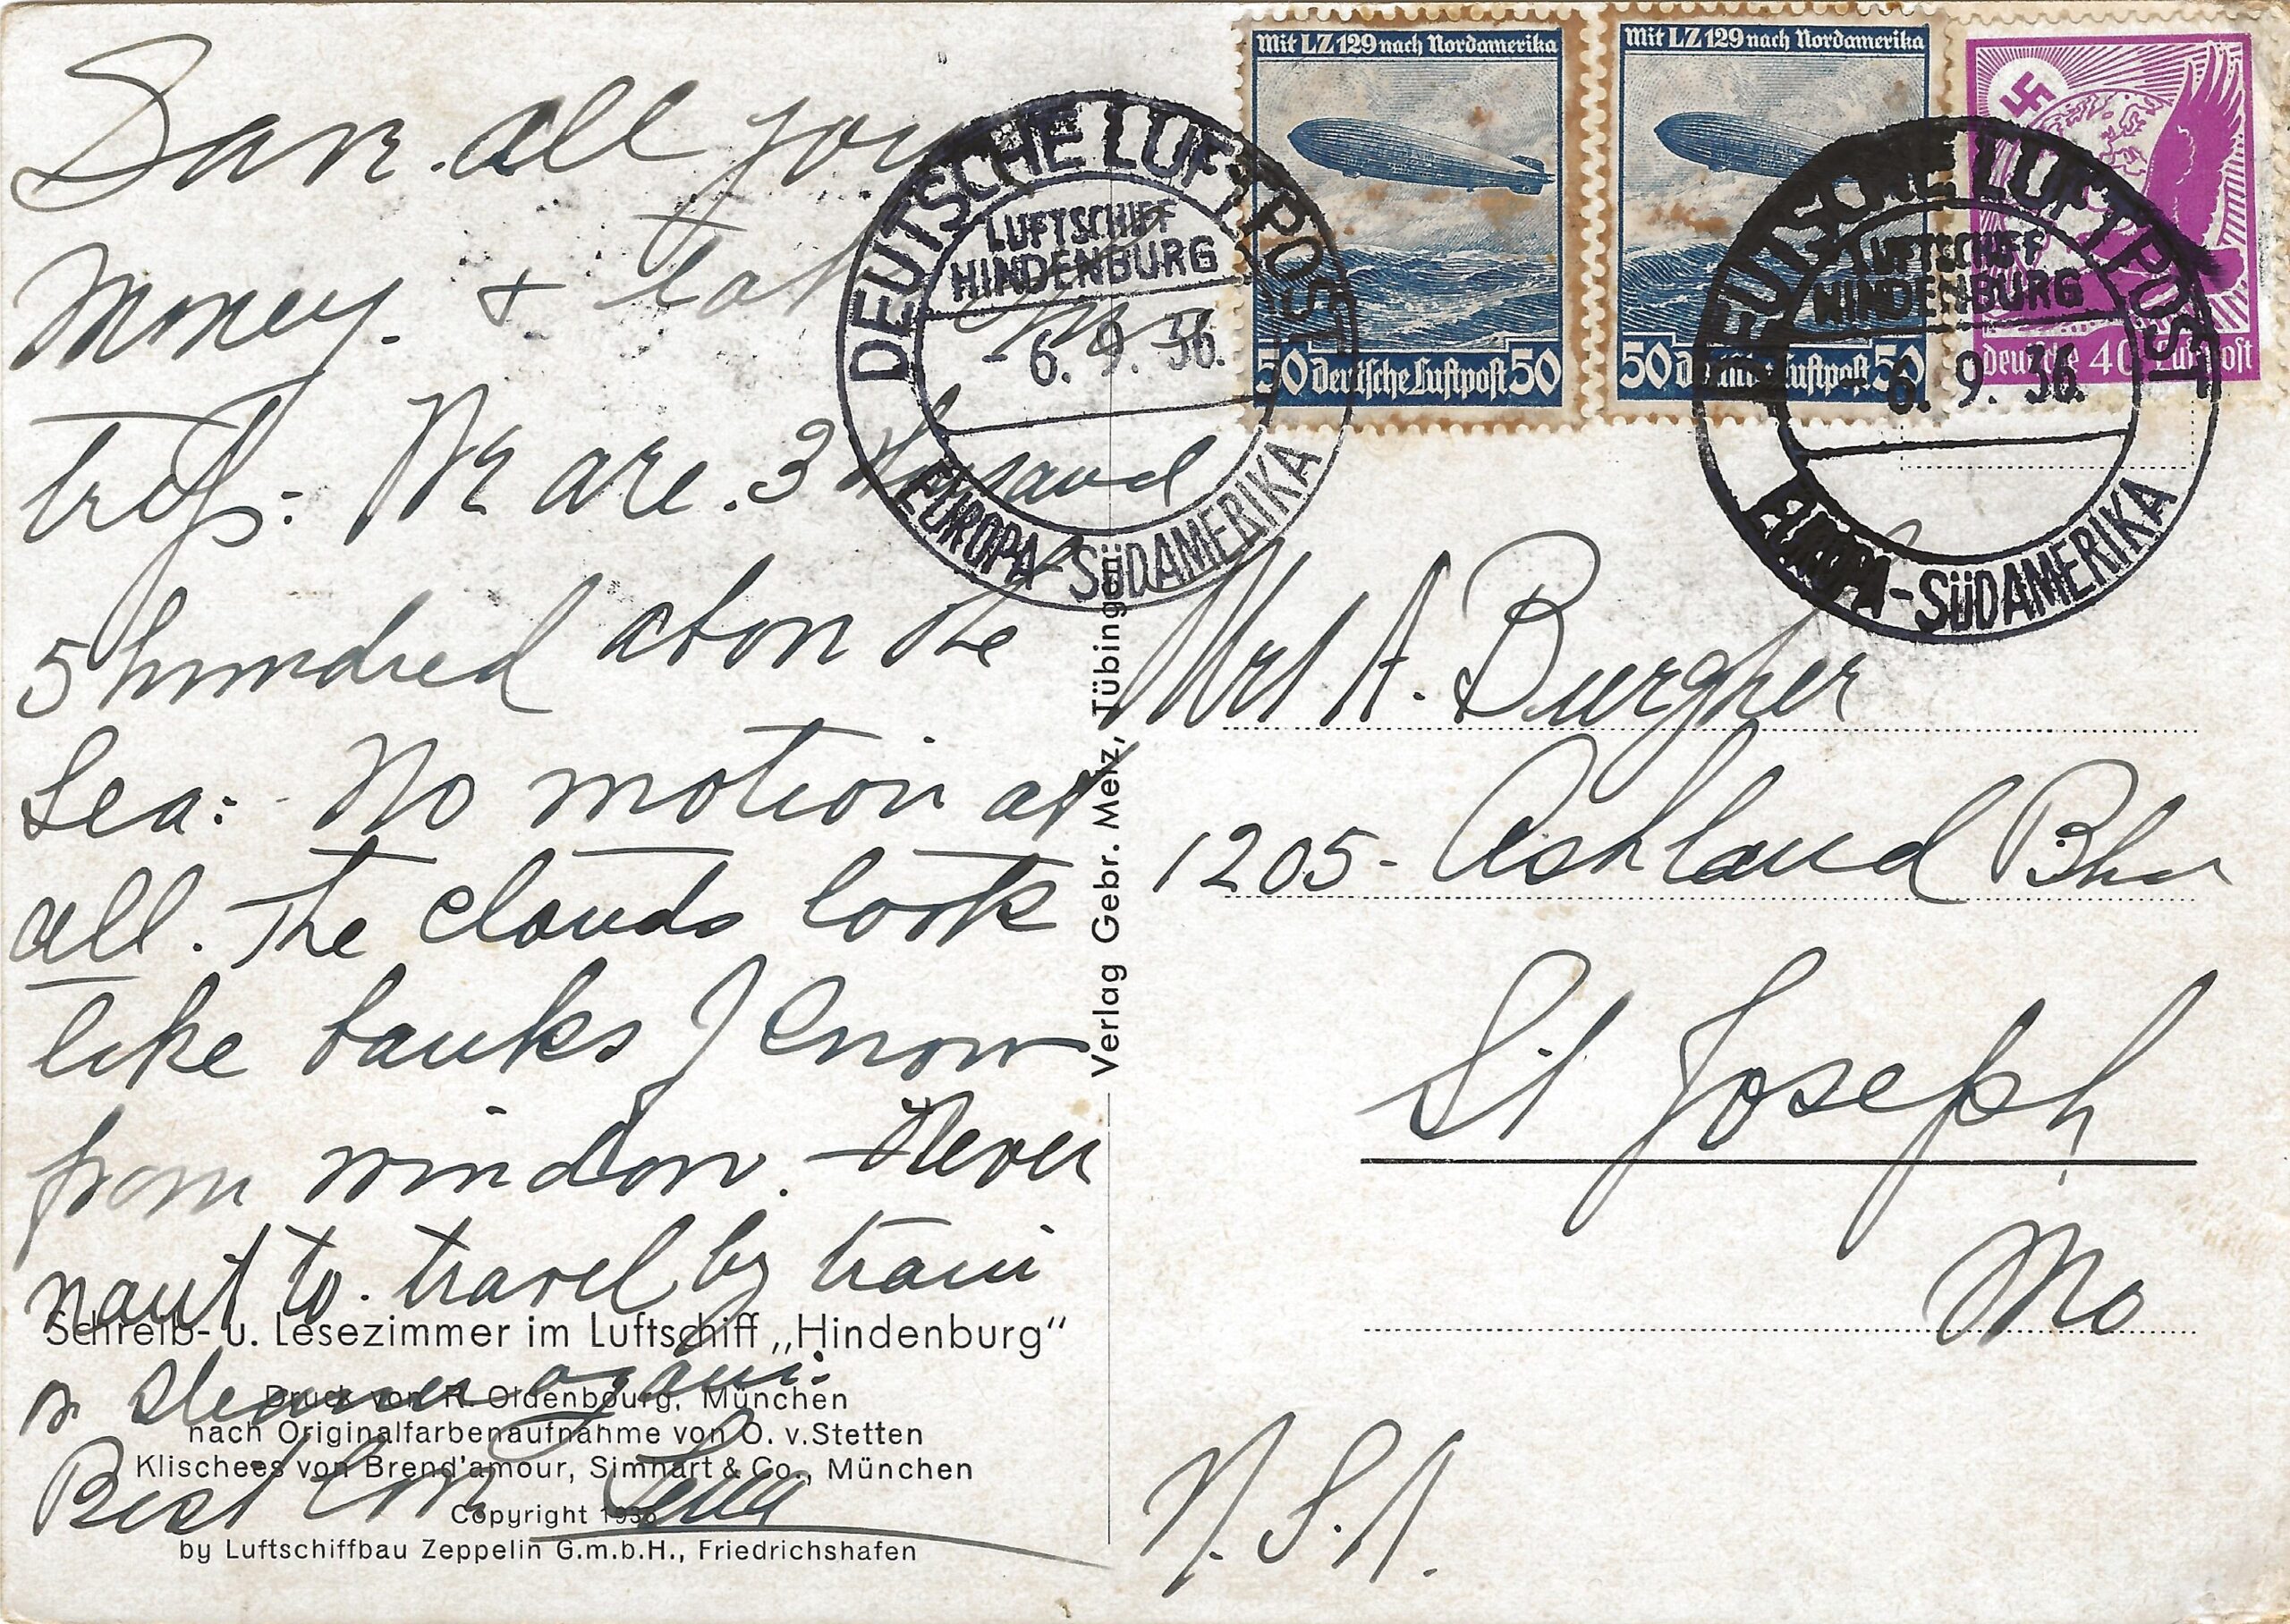 Mit LZ 129 nach Nordamerika
50 Deutsche Luftpost 50
Mit LZ 129 nach Nordamerika
50 Deutsche Luftpost 50
deutsche 40 Luftpost
DEUTSCHE LUFTPOST
LUFTSCHIFF
HINDENBURG
- 6. 9. 36.
EUROPA-SÜDAMERIKA
DEUTSCHE LUFTPOST
LUFTSCHIFF
HINDENBURG
- 6. 9. 36.
EUROPA-SÜDAMERIKA
Save all your
money. + take this
trip:- We are 3 thousand
5 hundred above the
Sea:- No motion at
all. The clouds look
like banks of snow
from window. - Never
want to travel by train
or steamer again:
Best love Lena
Schreib- u. Lesezimmer im Luftschiff „Hindenburg"
Druck von R. Oldenbourg, München
nach Originalfarbenaufnahme von O. v. Stetten
Klischees von Brend'amour, Simhart & Co., München
Copyright 1936
by Luftschiffbau Zeppelin G.m.b.H., Friedrichshafen
Verlag Gebr. Metz, Tübingen
Mrs A. Burgher
1205- Ashland Blvd
St Joseph
Mo
U.S.A.